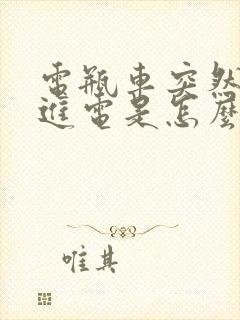 電瓶車突然
進電是怎麼
唯其